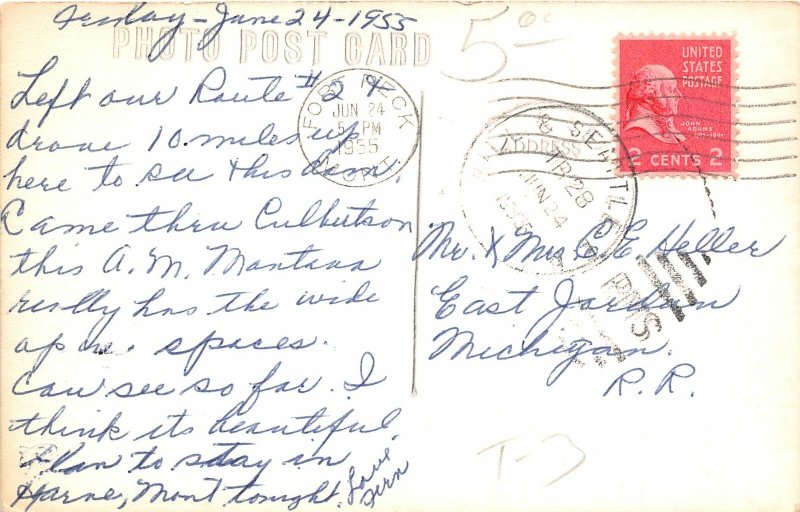 Friday - June 24 - 1955
PHOTO POST CARD
Left our Route #2 &
drove 10 miles up
here to see this dam.
Came thru Culbertson
this A.M. Montana
really has the wide
open spaces.
Can see so far. I
think its beautiful.
Plan to stay in
Havre, Mont tonight.
Love
Fern
FORT PECK
JUN 24
5 PM
1955
MONT.
5⁰⁰
UNITED
STATES
POSTAGE
JOHN
ADAMS
2 CENTS 2
ADDRESS
& SEATTLE
TR 28
JUN 24
RMS
Mr. & Mrs C. E. Heller
East Jordan
Michigan.
R. R.
T-3